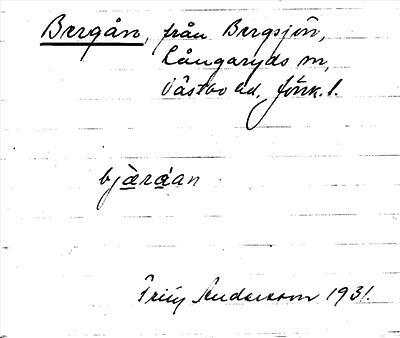 Bergån, från Bergsjön,
Långaryds sn,
Västbo hd, Jönk. l.
bjæràan
Frity Andersson 1931.